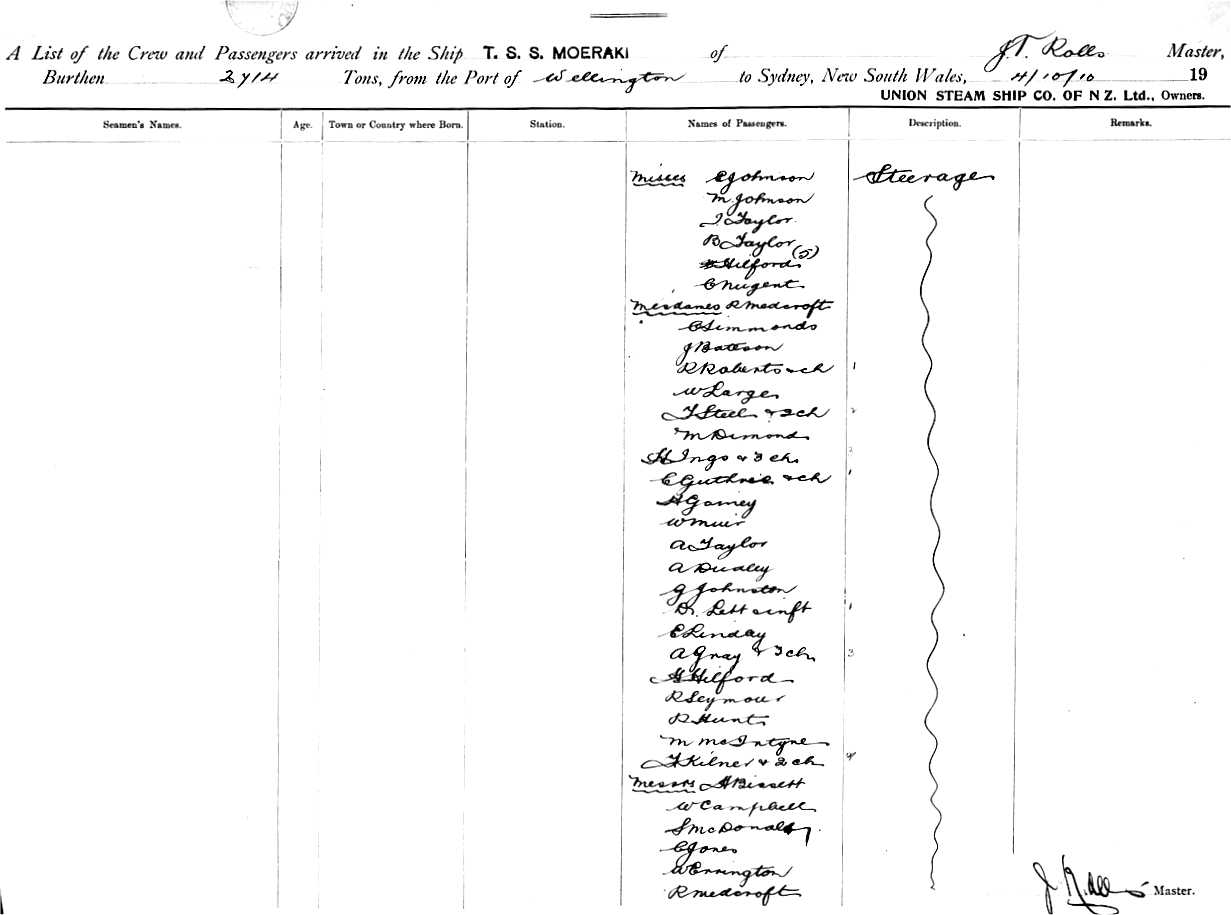 A List of the Crew and Passengers arrived in the Ship T. S. S. MOERAKI of J.T. Rolls Master,
Burthen 2714 Tons, from the Port of Wellington to Sydney, New South Wales, 4/10/10 19
UNION STEAM SHIP CO. OF N Z. Ltd., Owners.
Seamen's Names. Age. Town or Country where Born. Station. Names of Passengers. Description. Remarks.
Misses E Johnson Steerage
M. Johnson
I Taylor
B Taylor
Hilfords (5)
C Nugent
Mesdames R Medcroft
C Simmonds
J Bateson
R Roberts & ch 1
W Large
T Steel & 2 ch 2
M Dimond
H Ingo & 3 ch 2
C Guthrie & ch 1
H Gamey
W Muir
A Taylor
A Dudley
G Johnston
Lett & inft 1
E Linday
A Gray & 3 ch 3
G Hilford
R Seymour
R Hunt
M McIntyre
T Kilner & 2 ch 4
Messrs H Bissett
W Campbell
S McDonald
C Jones
W Errington
R Medcroft
J Rolls Master.